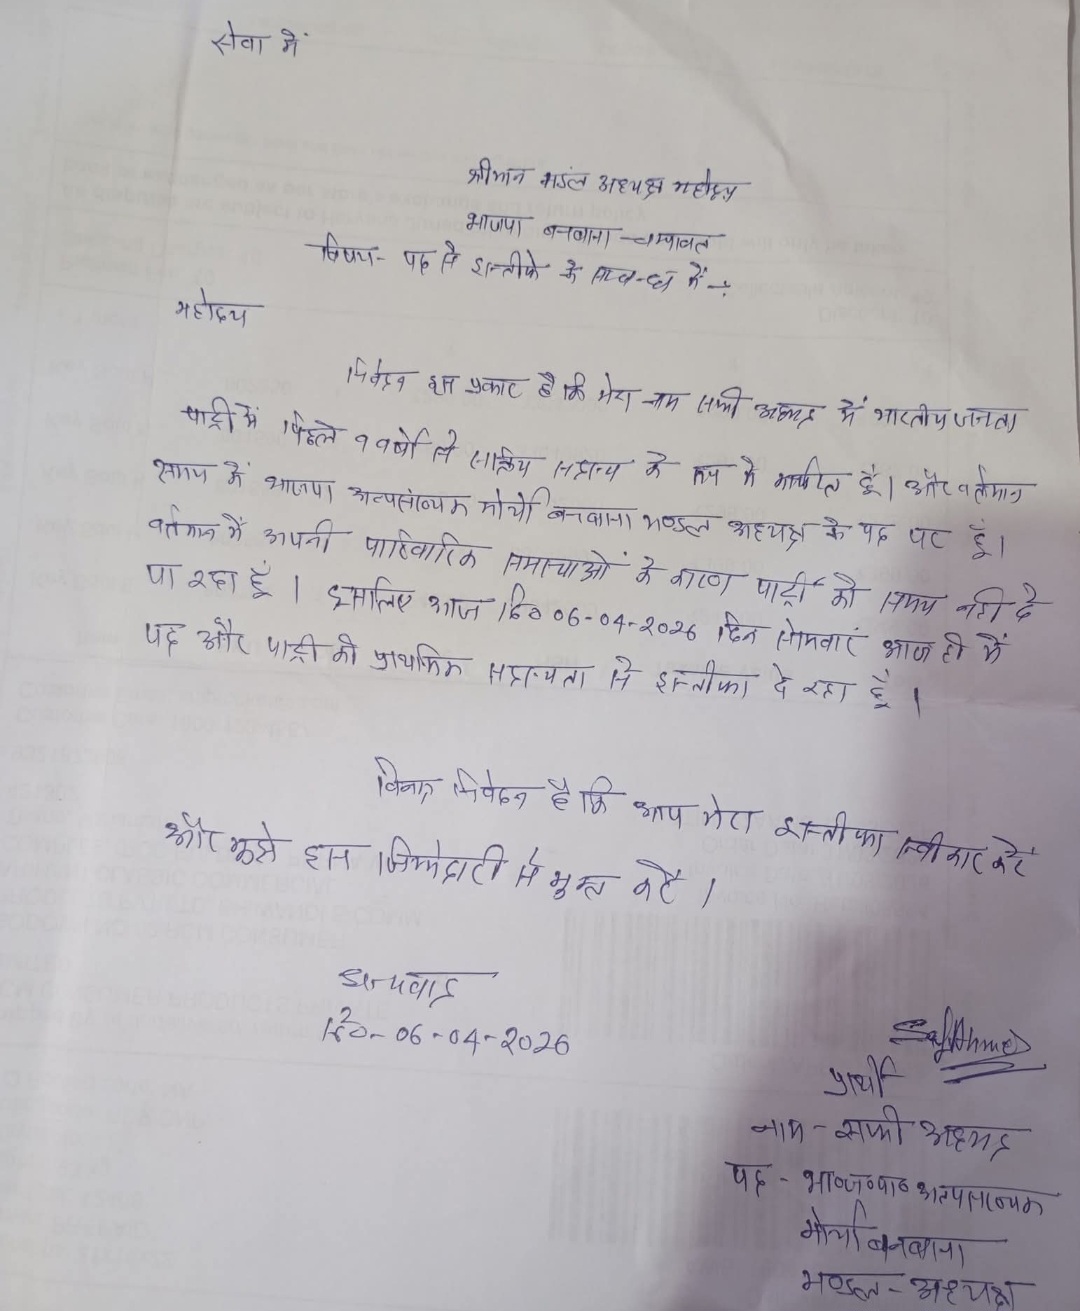 सेवा में
श्रीमान मंडल अध्यक्ष महोदय
भाजपा बनबासा चम्पावत
विषय- पद से इस्तीफे के सम्बन्ध में -:
महोदय
निवेदन इस प्रकार है कि मेरा नाम सफी अहमद में भारतीय जनता
पार्टी में पिछले 9 वर्षो से सक्रिय सदस्य के रूप मे कार्यरत हूँ। और वर्तमान
समय में भाजपा अल्पसंख्यक मोर्चा बनबासा मण्डल अध्यक्ष के पद पर हूँ।
वर्तमान में अपनी पारिवारिक समास्याओं के कारण पार्टी को समय नही दे
पा रहा हूँ। इसलिए आज दि० 06-04-2026 दिन सोमवार आज ही में
पद और पार्टी की प्राथमिक सदस्यता से इस्तीफा दे रहा हूँ।
विनम्र निवेदन है कि आप मेरा इस्तीफा स्वीकार करें
और मुझे इस जिम्मेदारी से मुक्त करें।
धन्यवाद
दि०- 06-04-2026
प्रार्थी
नाम - सफी अहमद
पद - भा०ज०पा० अल्पसंख्यक
मोर्चा बनबासा
मण्डल - अध्यक्ष